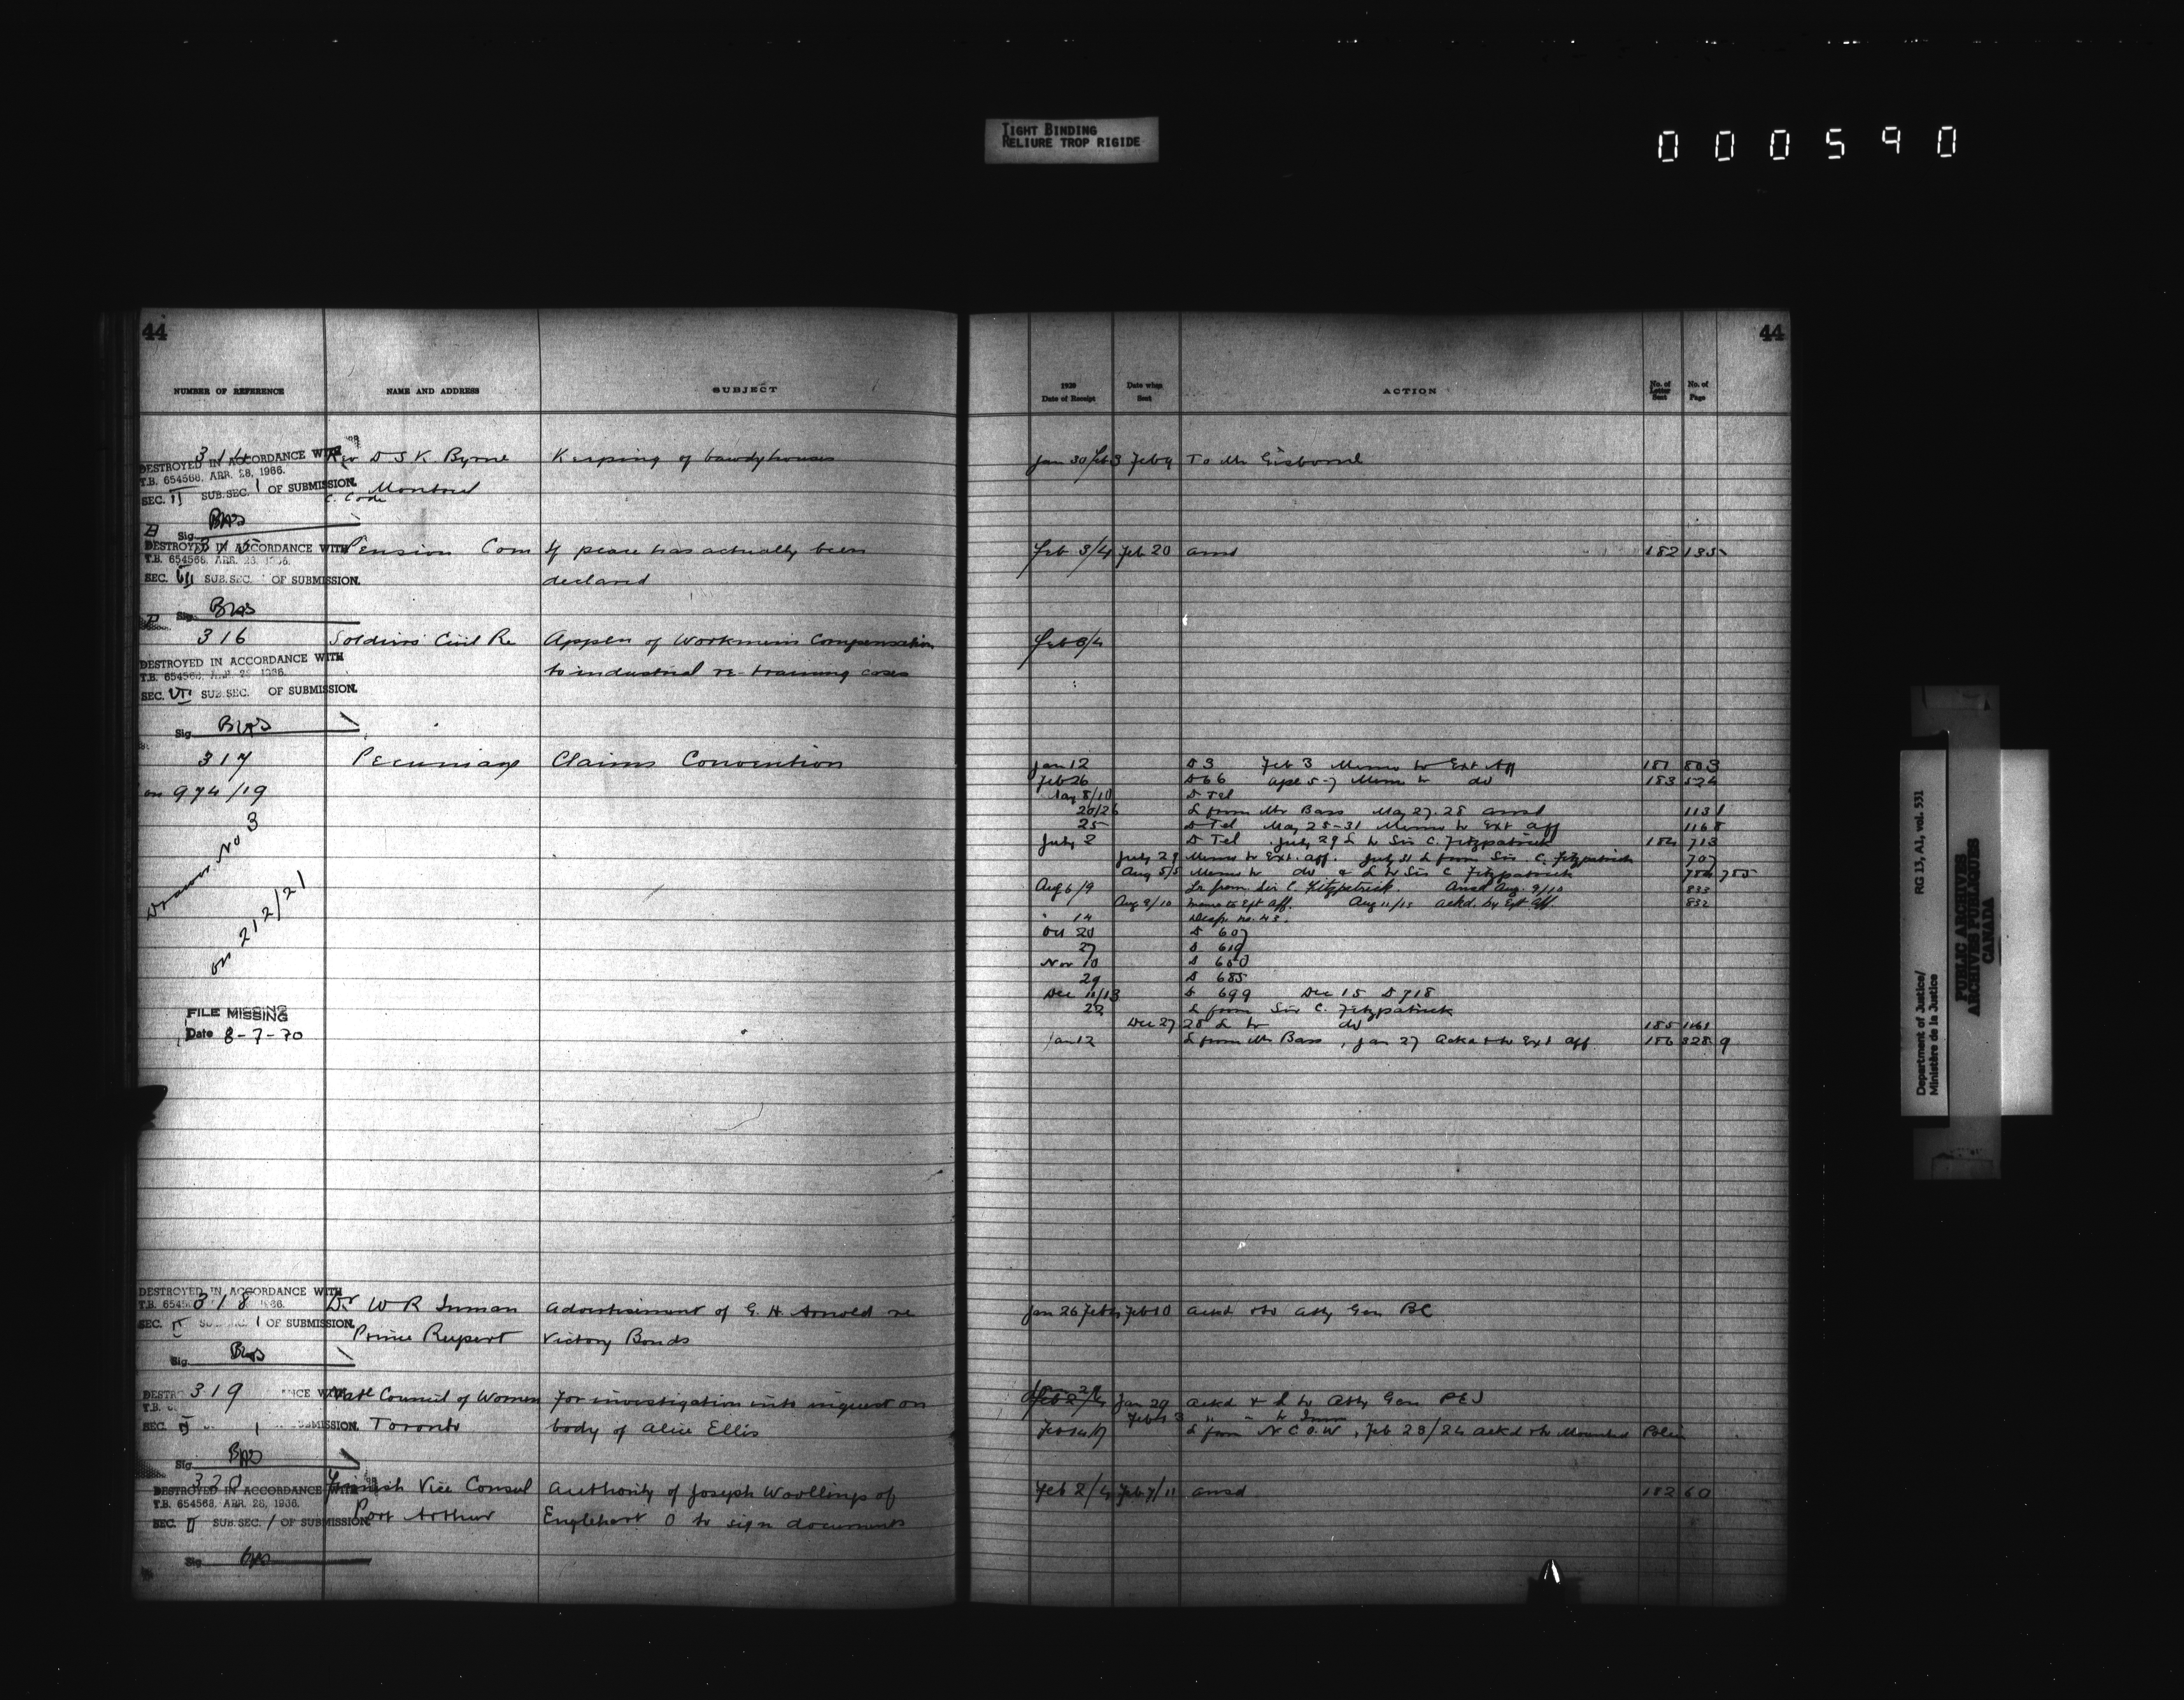 TIGHT BINDING
RELIURE TROP RIGIDE
000590
44
NUMBER OF REFERENCE NAME AND ADDRESS SUBJECT
314 Rev D S K Byrne Keeping of bawdyhouses
DESTROYED IN ACCORDANCE WITH
T.B. 654568, APR. 28, 1966.
SEC. II SUB.SEC. 1 OF SUBMISSION. Montreal
C. Code
Sig.
315 Pension Com If peace has actually been
DESTROYED IN ACCORDANCE WITH
T.B. 654568, APR.
SEC. SUB.SEC. OF SUBMISSION. declared
Sig.
316 Soldiers' Civil Re Appln of Workmen's Compensation
DESTROYED IN ACCORDANCE WITH to industrial re-training cases
T.B. 654568,
SEC. SUB.SEC. OF SUBMISSION.
Sig.
317 Pecuniary Claims Convention
on 974/19
Drawer No 3
on 212/21
FILE MISSING
Date 8-7-70
DESTROYED IN ACCORDANCE WITH
318 Dr W R Inman Advertisement of G. H. Arnold re
SEC. 1 OF SUBMISSION.
Prince Rupert Victory Bonds
Sig.
319 Natl Council of Women For investigation into inquest on
T.B.
SEC. 1 Toronto body of Alice Ellis
Sig.
320 Vice Consul Authority of Joseph Woollings of
DESTROYED IN ACCORDANCE WITH
T.B. 654568, APR. 28, 1966.
SEC. II SUB.SEC. 1 OF SUBMISSION. Port Arthur Englehart O to sign documents
Sig.
44
1920
Date of Receipt Date when Sent ACTION No. of Letter Sent No. of Page
Jan 30/Feb 3 Feb 9 To Mr Gisborne
Feb 3/4 Feb 20 ansd 182 135
Feb 3/4
Jan 12 D 3 Feb 3 Memo to Ext Aff 181 803
Feb 26 D 66 Apl 5-7 Memo to do 183 524
May 8/10 D Tel
20/26 L from Mr Bass May 27.28 ansd 1131
25 D Tel May 28-31 Memo to Ext Aff 1168
July 2 D Tel July 29 L to Sir C. Fitzpatrick 184 713
July 29 Memo to Ext. Aff. July 31 L from Sir C. Fitzpatrick 707
Aug 5/5 Memo to do & L to Sir C Fitzpatrick 754 755
Aug 6/9 Lr from Sir C. Fitzpatrick. Ansd Aug. 9/10 833
Aug 9/10 Memo to Ext Aff. Aug 11/13 ackd. by Ext Aff. 832
" 14 Desp. no. 43.
Oct 20 D 607
27 D 619
Nov 10 D 650
29 D 685
Dec 11/13 D 699 Dec 15 D 718
22 L from Sir C. Fitzpatrick
Dec 27 28 L to do 185 1161
Jan 12 L from Mr Bass, Jan 27 Ackd & to Ext Aff 186 328 9
Jan 26 Feb 4 Feb 10 Ackd & to Atty Gen BC
Feb 2/4 Jan 29 Ackd & L to Atty Gen PEI
Feb 3 " " to
Feb 14/17 L from N C O W, Feb 23/24 ackd & to Mounted Police
Feb 2/4 Feb 7/11 ansd 182 60
Department of Justice/
Ministère de la Justice
RG 13, A1, vol. 531
PUBLIC ARCHIVES
ARCHIVES PUBLIQUES
CANADA